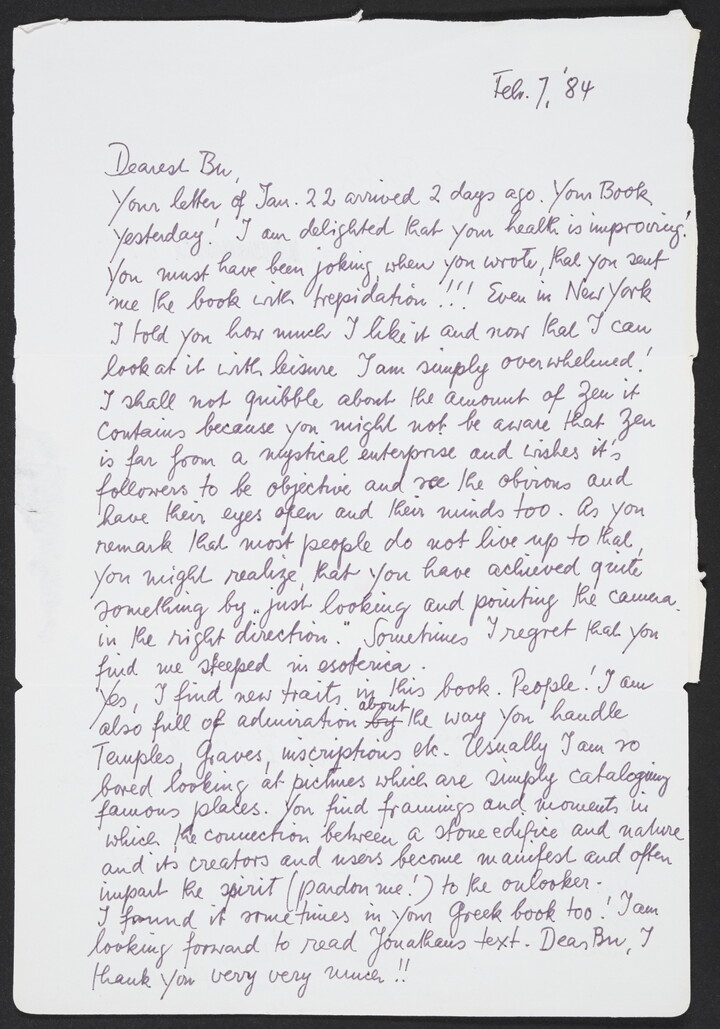 Feb. 7, '84
Dearest Bu,
Your letter of Jan. 22 arrived 2 days ago. Your Book
yesterday! I am delighted that your health is improving!
You must have been joking, when you wrote, that you sent
me the book with trepidation!!! Even in New York
I told you how much I like it and now that I can
look at it with leisure I am simply overwhelmed!
I shall not quibble about the amount of Zen it
contains because you might not be aware that Zen
is far from a mystical enterprise and wishes it's
followers to be objective and see the obvious and
have their eyes open and their minds too. As you
remark that most people do not live up to that,
you might realize, that you have achieved quite
something by „just looking and pointing the camera
in the right direction." Sometimes I regret that you
find me steeped in esoterica.
Yes, I find new traits in this book. People! I am
also full of admiration by about the way you handle
Temples, Graves, inscriptions etc. Usually I am so
bored looking at pictures which are simply cataloging
famous places. You find framings and moments in
which the connection between a stone edifice and nature
and its creators and users become manifest and often
impart the spirit (pardon me!) to the onlooker.
I found it sometimes in your Greek book too! I am
looking forward to read Jonathans text. Dear Bu, I
thank you very very much!!